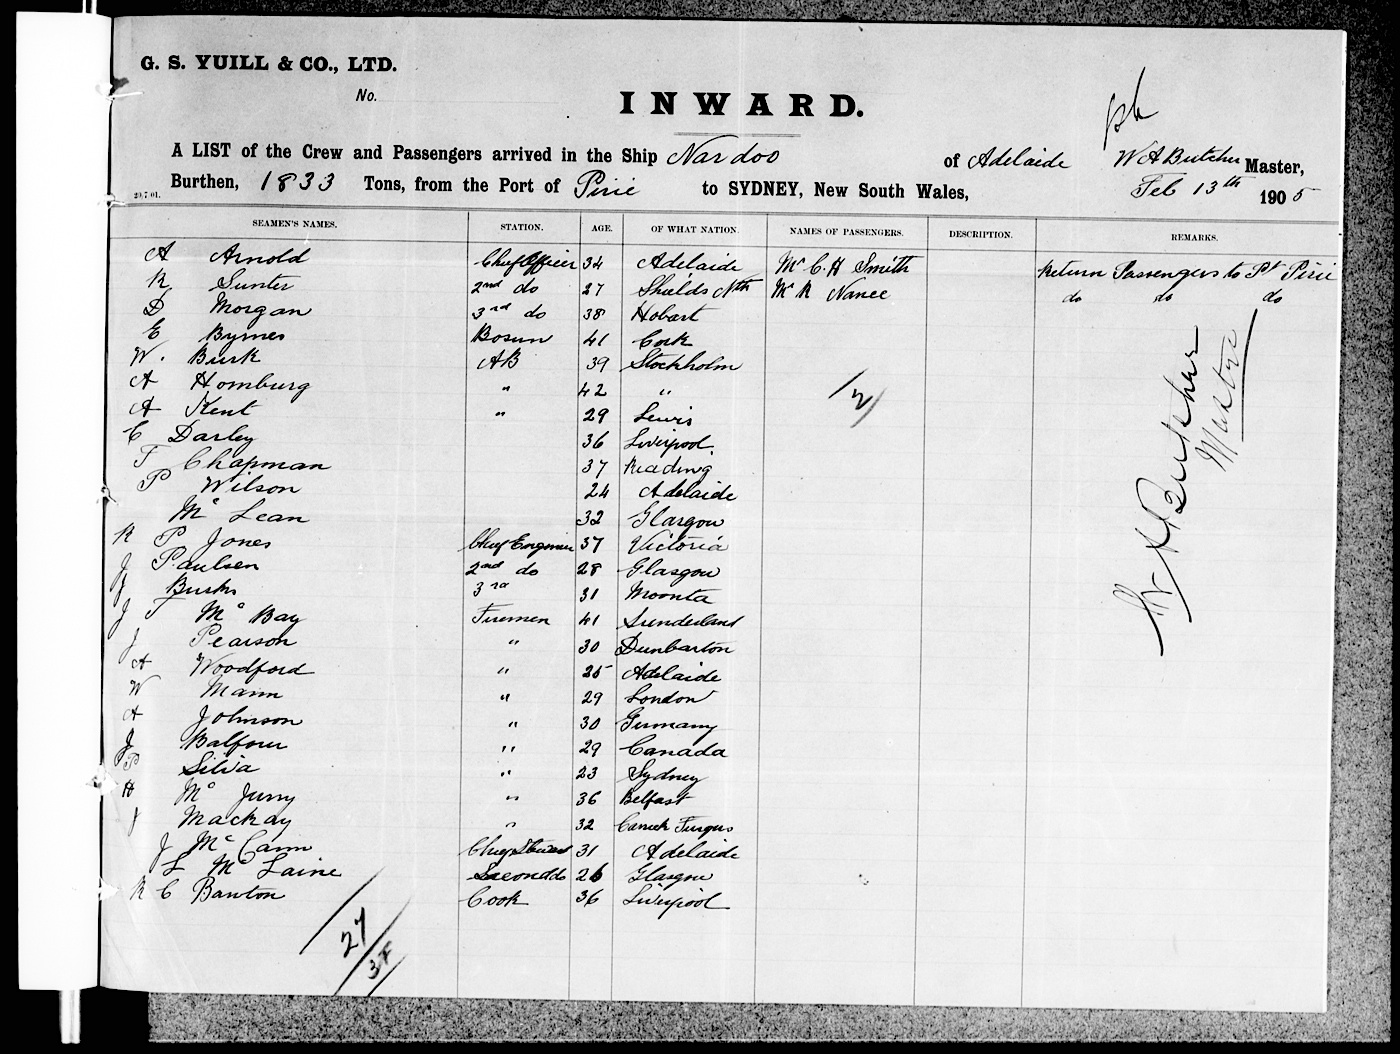 G. S. YUILL & CO., LTD.
No.
INWARD.
A LIST of the Crew and Passengers arrived in the Ship Nardoo of Adelaide W A Butcher Master,
Burthen, 1833 Tons, from the Port of Pirie to SYDNEY, New South Wales, Feb 13th 1905
29.7.01.
SEAMEN'S NAMES. STATION. AGE. OF WHAT NATION. NAMES OF PASSENGERS. DESCRIPTION. REMARKS.
A Arnold Chief Officer 34 Adelaide Mr C. H Smith Return Passengers to Pt Pirie
R Sunter 2nd do 27 Shields Nth Mr R Nance do do do
D Morgan 3rd do 38 Hobart
E Byrnes Bosun 41 Cork
W. Burk AB 39 Stockholm
A Homburg " 42 "
A Kent " 29 Lewis
C Darley 36 Liverpool.
T Chapman 37 Reading
P Wilson 24 Adelaide
Mc Lean 32 Glasgow
R P Jones Chief Engineer 37 Victoria
J Paulsen 2nd do 28 Glasgow
J 3rd 31 Moonta
J T Mc Bay Firemen 41 Sunderland
J Pearson " 30 Dunbarton
A Woodford " 25 Adelaide
W Mann " 29 London
A Johnson " 30 Germany
J Balfour " 29 Canada
P Silva " 23 Sydney
H Mc " 36 Belfast
J Mackay " 32 Carrick Fergus
J Mc Cann Chief Steward 31 Adelaide
L Mc Laine Second do 26 Glasgow
R C Banton Cook 36 Liverpool
2
27
W A Butcher
Master